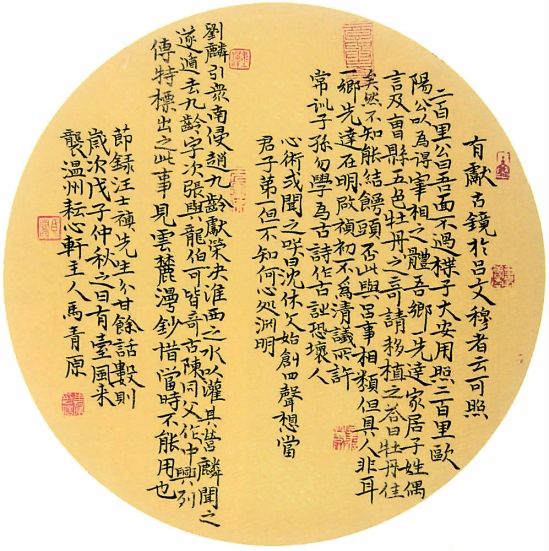 有獻古鏡於呂文穆者云可照
二百里公曰吾面不過楪子大安用照三百里歐
陽公以為得宰相之體吾鄉先達家居子姓偶
言及曹縣五色牡丹之奇請移植之荅曰牡丹佳
矣然不知能結饅頭否此與呂事相類但具人非耳
一鄉先達在明啟禎初不為清議所許
常訓子孫勿學為古詩作古詩恐壞人
心術或聞之咲曰沈休文始創四聲想當
君子第一但不知何心処淵明
劉麟引衆南侵趙九齡獻策決淮西之水以灌其營麟聞之
遂遁去九齡字次張與龍伯可皆奇士陳同父作中興列
傳特標出之此事見雲麓漫鈔惜當時不能用也
節録汪士禎先生分甘餘話數則
歲次戊子仲秋之日有臺風来
襲温州耘心軒主人馬青原